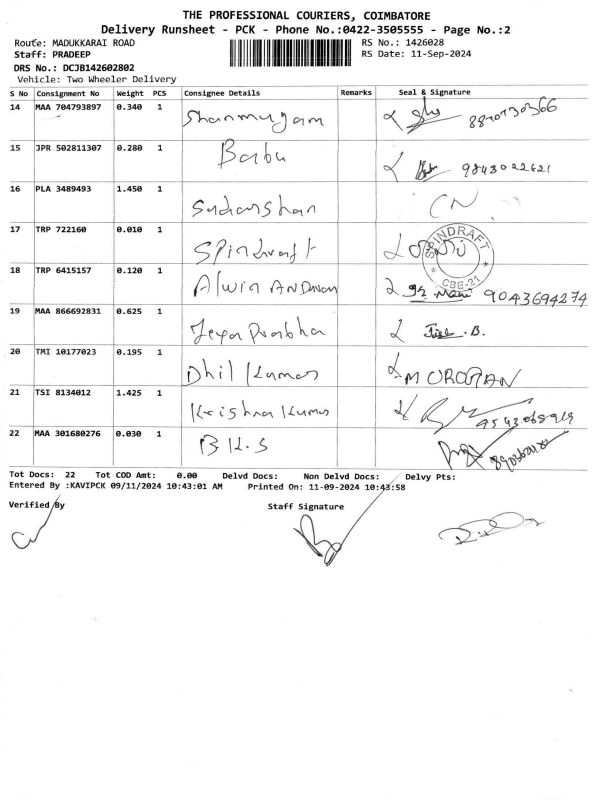 THE PROFESSIONAL COURIERS, COIMBATORE
Delivery Runsheet - PCK - Phone No.:0422-3505555 - Page No.:2
Route: MADUKKARAI ROAD RS No.: 1426028
Staff: PRADEEP RS Date: 11-Sep-2024
DRS No.: DCJB142602802
Vehicle: Two Wheeler Delivery
S No Consignment No Weight PCS Consignee Details Remarks Seal & Signature
14 MAA 704793897 0.340 1 Shanmugam
15 JPR 502811307 0.280 1 Babu 9843022621
16 PLA 3489493 1.450 1 Sudarshan CN
17 TRP 722160 0.010 1 Spindraft SPINDRAFT CBE-21
18 TRP 6415157 0.120 1 Alwin ANDavan Mani 9043694274
19 MAA 866692831 0.625 1 Jeya Prabha B.
20 TMI 10177023 0.195 1 Dhil Kumar MURUGAN
21 TSI 8134012 1.425 1 Krishna Kumar
22 MAA 301680276 0.030 1 B K.S
Tot Docs: 22 Tot COD Amt: 0.00 Delvd Docs: Non Delvd Docs: Delvy Pts:
Entered By :KAVIPCK 09/11/2024 10:43:01 AM Printed On: 11-09-2024 10:43:58
Verified By Staff Signature